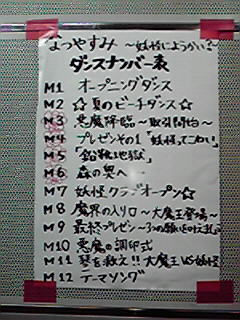 なつやすみ ~妖怪にようかい?~
ダンスナンバー表
M1 オープニングダンス
M2 ☆夏のビーチダンス☆
M3 悪魔降臨~取引開始~
M4 プレゼンその1「妖怪ってこわい」
M5 「鉛筆地獄」
M6 森の奥へ…
M7 妖怪クラブオープン☆
M8 魔界の入り口~大魔王登場~
M9 最終プレゼン~3つの願いを叶えまし
M10 悪魔の調印式
M11 琴を救え!!大魔王VS妖怪
M12 テーマソング